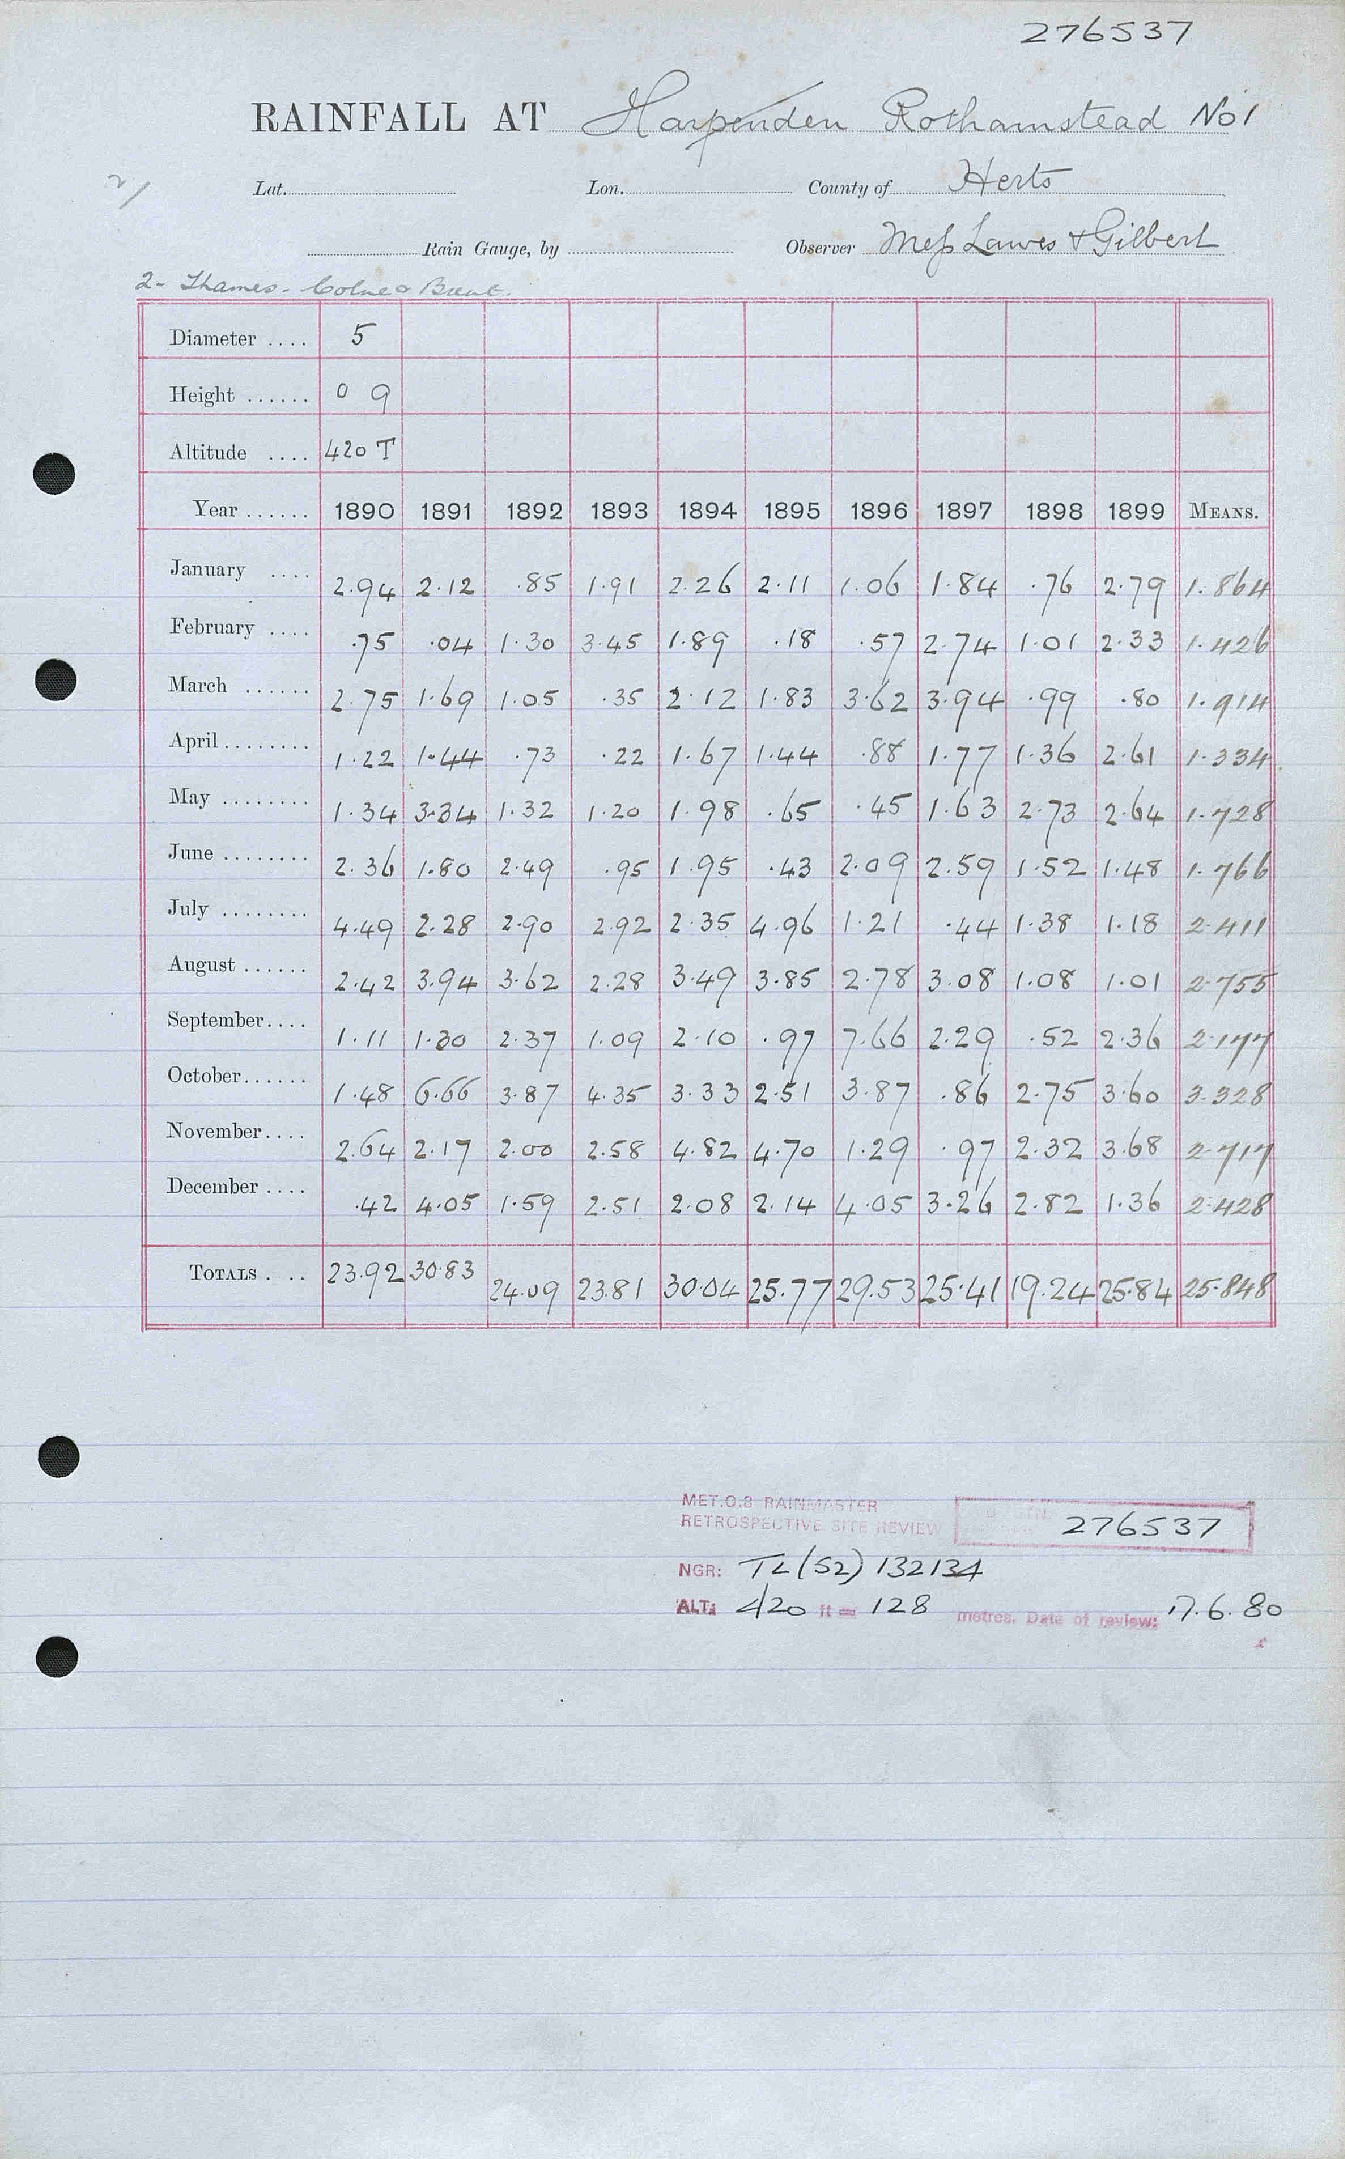 276537
RAINFALL AT Harpenden Rothamstead No 1
2/
Lat. Lon. County of Herts
Rain Gauge, by Observer Mess Lawes & Gilbert
2 - Thames - Colne & Brent.
Diameter .... 5
Height ...... 0 9
Altitude .... 420 T
Year ...... 1890 1891 1892 1893 1894 1895 1896 1897 1898 1899 MEANS.
January .... 2.94 2.12 .85 1.91 2.26 2.11 1.06 1.84 .76 2.79 1.864
February .... .75 .04 1.30 3.45 1.89 .18 .57 2.74 1.01 2.33 1.426
March ...... 2.75 1.69 1.05 .35 2.12 1.83 3.62 3.94 .99 .80 1.914
April ........ 1.22 1.44 .73 .22 1.67 1.44 .88 1.77 1.36 2.61 1.334
May ........ 1.34 3.34 1.32 1.20 1.98 .65 .45 1.63 2.73 2.64 1.728
June ........ 2.36 1.80 2.49 .95 1.95 .43 2.09 2.59 1.52 1.48 1.766
July ........ 4.49 2.28 2.90 2.92 2.35 4.96 1.21 .44 1.38 1.18 2.411
August ...... 2.42 3.94 3.62 2.28 3.49 3.85 2.78 3.08 1.08 1.01 2.755
September .... 1.11 1.30 2.37 1.09 2.10 .97 7.66 2.29 .52 2.36 2.177
October ...... 1.48 6.66 3.87 4.35 3.33 2.51 3.87 .86 2.75 3.60 3.328
November .... 2.64 2.17 2.00 2.58 4.82 4.70 1.29 .97 2.32 3.68 2.717
December .... .42 4.05 1.59 2.51 2.08 2.14 4.05 3.26 2.82 1.36 2.428
TOTALS . .. 23.92 30.83 24.09 23.81 30.04 25.77 29.53 25.41 19.24 25.84 25.848
MET.O.8 RAINMASTER
RETROSPECTIVE SITE REVIEW 276537
NGR: TL (52) 132134
ALT: 420 ft = 128 metres. Date of review: 17.6.80